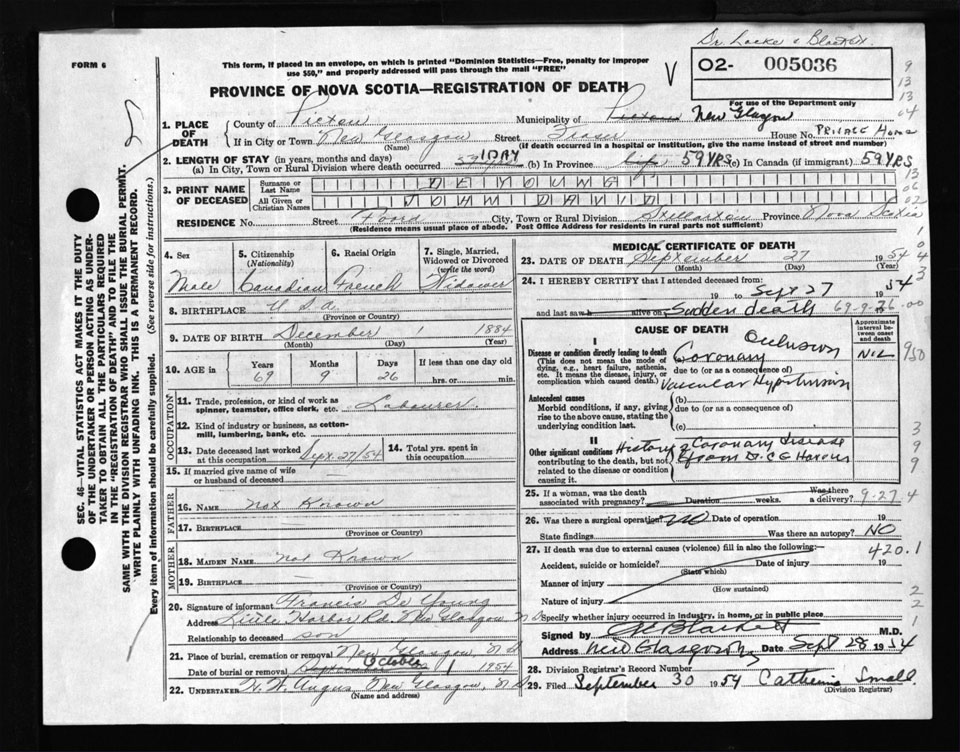 Dr. Locke & Blackett.
FORM 6
This form, if placed in an envelope, on which is printed "Dominion Statistics—Free, penalty for improper
use $50," and properly addressed will pass through the mail "FREE"
PROVINCE OF NOVA SCOTIA—REGISTRATION OF DEATH
02- 005036
For use of the Department only
1. PLACE OF DEATH
County of Pictou Municipality of Pictou New Glasgow
If in City or Town New Glasgow Street Fraser House No. PRIVATE Home
(Name) (If death occurred in a hospital or institution, give the name instead of street and number)
2. LENGTH OF STAY (in years, months and days)
(a) In City, Town or Rural Division where death occurred 1 DAY (b) In Province 59 YRS (c) In Canada (if immigrant) 59 YRS
3. PRINT NAME OF DECEASED
Surname or Last Name DEYOUNG
All Given or Christian Names JOHN DAVID
RESIDENCE No. Street Foord City, Town or Rural Division Stellarton Province Nova Scotia
(Residence means usual place of abode. Post Office Address for residents in rural parts not sufficient)
4. Sex Male
5. Citizenship (Nationality) Canadian
6. Racial Origin French
7. Single, Married, Widowed or Divorced (write the word) Widower
8. BIRTHPLACE U.S.A.
(Province or Country)
9. DATE OF BIRTH December 1 1884
(Month) (Day) (Year)
10. AGE in Years Months Days If less than one day
69 9 26 hrs. or min.
OCCUPATION
11. Trade, profession, or kind of work as spinner, teamster, office clerk, etc. Labourer
12. Kind of industry or business, as cotton-mill, lumbering, bank, etc.
13. Date deceased last worked at this occupation Sept. 27/54
14. Total yrs. spent in this occupation
15. If married give name of wife or husband of deceased
FATHER
16. NAME Not Known
17. BIRTHPLACE
(Province or Country)
MOTHER
18. MAIDEN NAME Not Known
19. BIRTHPLACE
(Province or Country)
20. Signature of informant Francis De Young
Address Little Harbor Rd. New Glasgow N S
Relationship to deceased son
21. Place of burial, cremation or removal New Glasgow, N S
Date of burial or removal September October 1 1954
22. UNDERTAKER H. W. Angus, New Glasgow, N S
(Name and address)
MEDICAL CERTIFICATE OF DEATH
23. DATE OF DEATH September 27 1954
(Month) (Day) (Year)
24. I HEREBY CERTIFY that I attended deceased from:
19 to Sept 27 1954
and last saw alive on Sudden death 69-9-26-00
CAUSE OF DEATH
Approximate interval between onset and death
I
Disease or condition directly leading to death
(This does not mean the mode of dying, e.g., heart failure, asthenia, etc. It means the disease, injury, or complication which caused death.)
(a) Coronary Occlusion NIL
due to (or as a consequence of)
Vascular Hypertension
Antecedent causes
Morbid conditions, if any, giving rise to the above cause, stating the underlying condition last.
(b)
due to (or as a consequence of)
(c)
II
Other significant conditions contributing to the death, but not related to the disease or condition causing it.
History of Coronary disease
from Dr. C E
25. If a woman, was the death associated with pregnancy? Duration weeks. Was there a delivery? 9-27 4
26. Was there a surgical operation? NO Date of operation 19
State findings Was there an autopsy? NO
27. If death was due to external causes (violence) fill in also the following:—
420.1
Accident, suicide or homicide? Date of injury 19
(State which)
Manner of injury
(How sustained)
Nature of injury
Specify whether injury occurred in industry, in home, or in public place
Signed by C E Blackett M.D.
Address New Glasgow Date Sept 28 1954
28. Division Registrar's Record Number
29. Filed September 30 1954 Catherine Small.
(Division Registrar)
SEC. 46—VITAL STATISTICS ACT MAKES IT THE DUTY
OF THE UNDERTAKER OR PERSON ACTING AS UNDER-
TAKER TO OBTAIN ALL THE PARTICULARS REQUIRED
IN THE "REGISTRATION OF DEATH" AND TO FILE THE
SAME WITH THE DIVISION REGISTRAR WHO SHALL ISSUE THE BURIAL PERMIT.
WRITE PLAINLY WITH UNFADING INK. THIS IS A PERMANENT RECORD.
Every item of information should be carefully supplied. (See reverse side for instructions.)